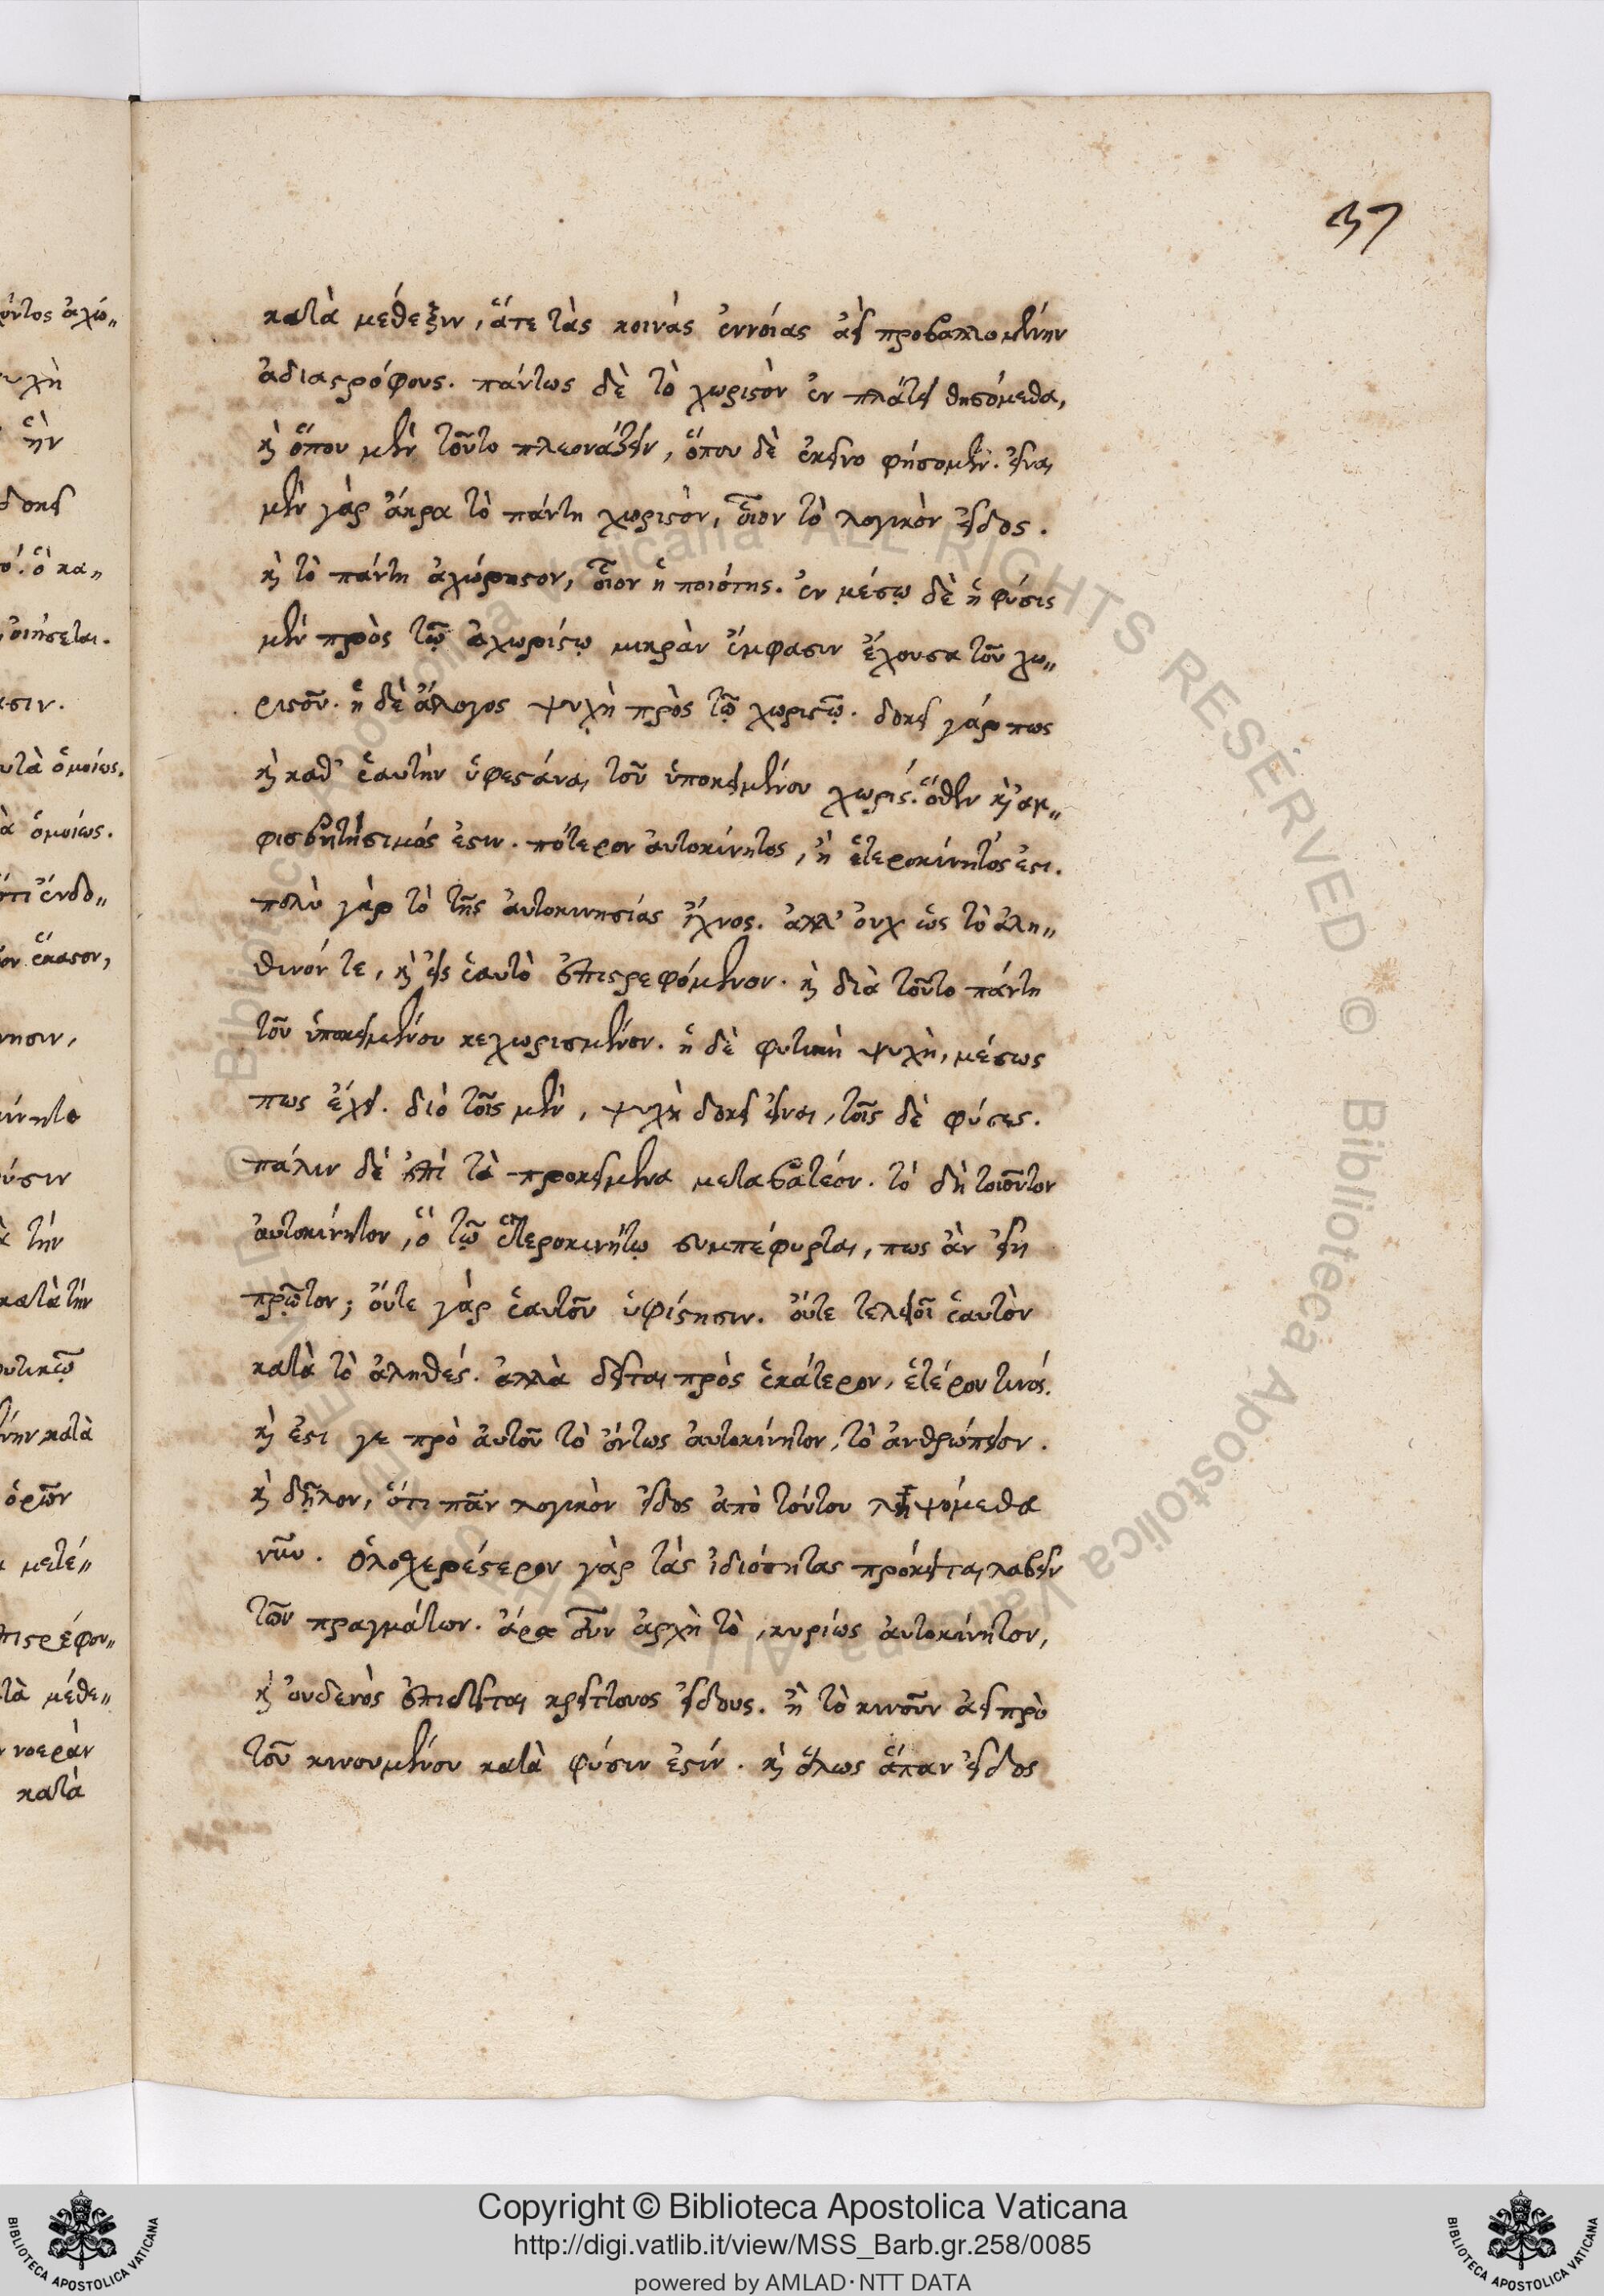 37
κατὰ μέθεξιν, ἅτε τὰς κοινὰς ἐννοίας ἀεὶ προβαλλομένην
ἀδιαστρόφους. πάντως δὲ τὸ χωριστὸν ἐν πλάτει θησόμεθα,
καὶ ὅπου μὲν τοῦτο πλεονάζειν, ὅπου δὲ ἐκεῖνο φήσομεν. εἶναι
μὲν γὰρ ἄκρα τὸ πάντη χωριστὸν, οἷον τὸ λογικὸν εἶδος.
καὶ τὸ πάντη ἀχώριστον, οἷον ἡ ποιότης. ἐν μέσῳ δὲ ἡ φύσις
μὲν πρὸς τῷ ἀχωρίστῳ μικρὰν ἔμφασιν ἔχουσα τοῦ χω„
ριστοῦ. ἡ δὲ ἄλογος ψυχὴ πρὸς τῷ χωριστῷ. δοκεῖ γάρ πως
καὶ καθ' ἑαυτὴν ὑφεστάναι τοῦ ὑποκειμένου χωρίς. ὅθεν καὶ ἀμ„
φισβητήσιμός ἐστιν. πότερον αὐτοκίνητος, ἢ ἑτεροκίνητός ἐστι.
πολὺ γὰρ τὸ τῆς αὐτοκινησίας ἴχνος. ἀλλ' οὐχ ὡς τὸ ἀλη„
θινόν τε, καὶ εἰς ἑαυτὸ ἐπιστρεφόμενον. καὶ διὰ τοῦτο πάντη
τοῦ ὑποκειμένου κεχωρισμένον. ἡ δὲ φυτικὴ ψυχὴ, μέσως
πως ἔχει. διὸ τοῖς μὲν, ψυχὴ δοκεῖ εἶναι, τοῖς δὲ φύσις.
πάλιν δὲ ἐπὶ τὰ προκείμενα μεταβατέον. τὸ δὴ τοιοῦτον
αὐτοκίνητον, ὃ τῷ ἑτεροκινήτῳ συμπέφυρται, πως ἂν εἴη
πρῶτον; οὔτε γὰρ ἑαυτοῦ ὑφίστησιν. οὔτε τελειοῖ ἑαυτὸν
κατὰ τὸ ἀληθές. ἀλλὰ δεῖται πρὸς ἑκάτερον, ἑτέρου τινός.
καὶ ἔστι γε πρὸ αὐτοῦ τὸ ὄντως αὐτοκίνητον, τὸ ἀνθρώπειον.
καὶ δῆλον, ὅτι πᾶν λογικὸν εἶδος ἀπὸ τούτου ληψόμεθα
νῦν. ὁλοσχερέστερον γὰρ τὰς ἰδιότητας πρόκειται λαβεῖν
τῶν πραγμάτων. ἆρα οὖν ἀρχὴ τὸ, κυρίως αὐτοκίνητον,
καὶ οὐδενὸς ἐπιδεῖται κρείττονος εἴδους. ἢ τὸ κινοῦν ἀεὶ πρὸ
τοῦ κινουμένου κατὰ φύσιν ἐστίν. καὶ ὅλως ἅπαν εἶδος
Copyright © Biblioteca Apostolica Vaticana
http://digi.vatlib.it/view/MSS_Barb.gr.258/0085
powered by AMLAD·NTT DATA